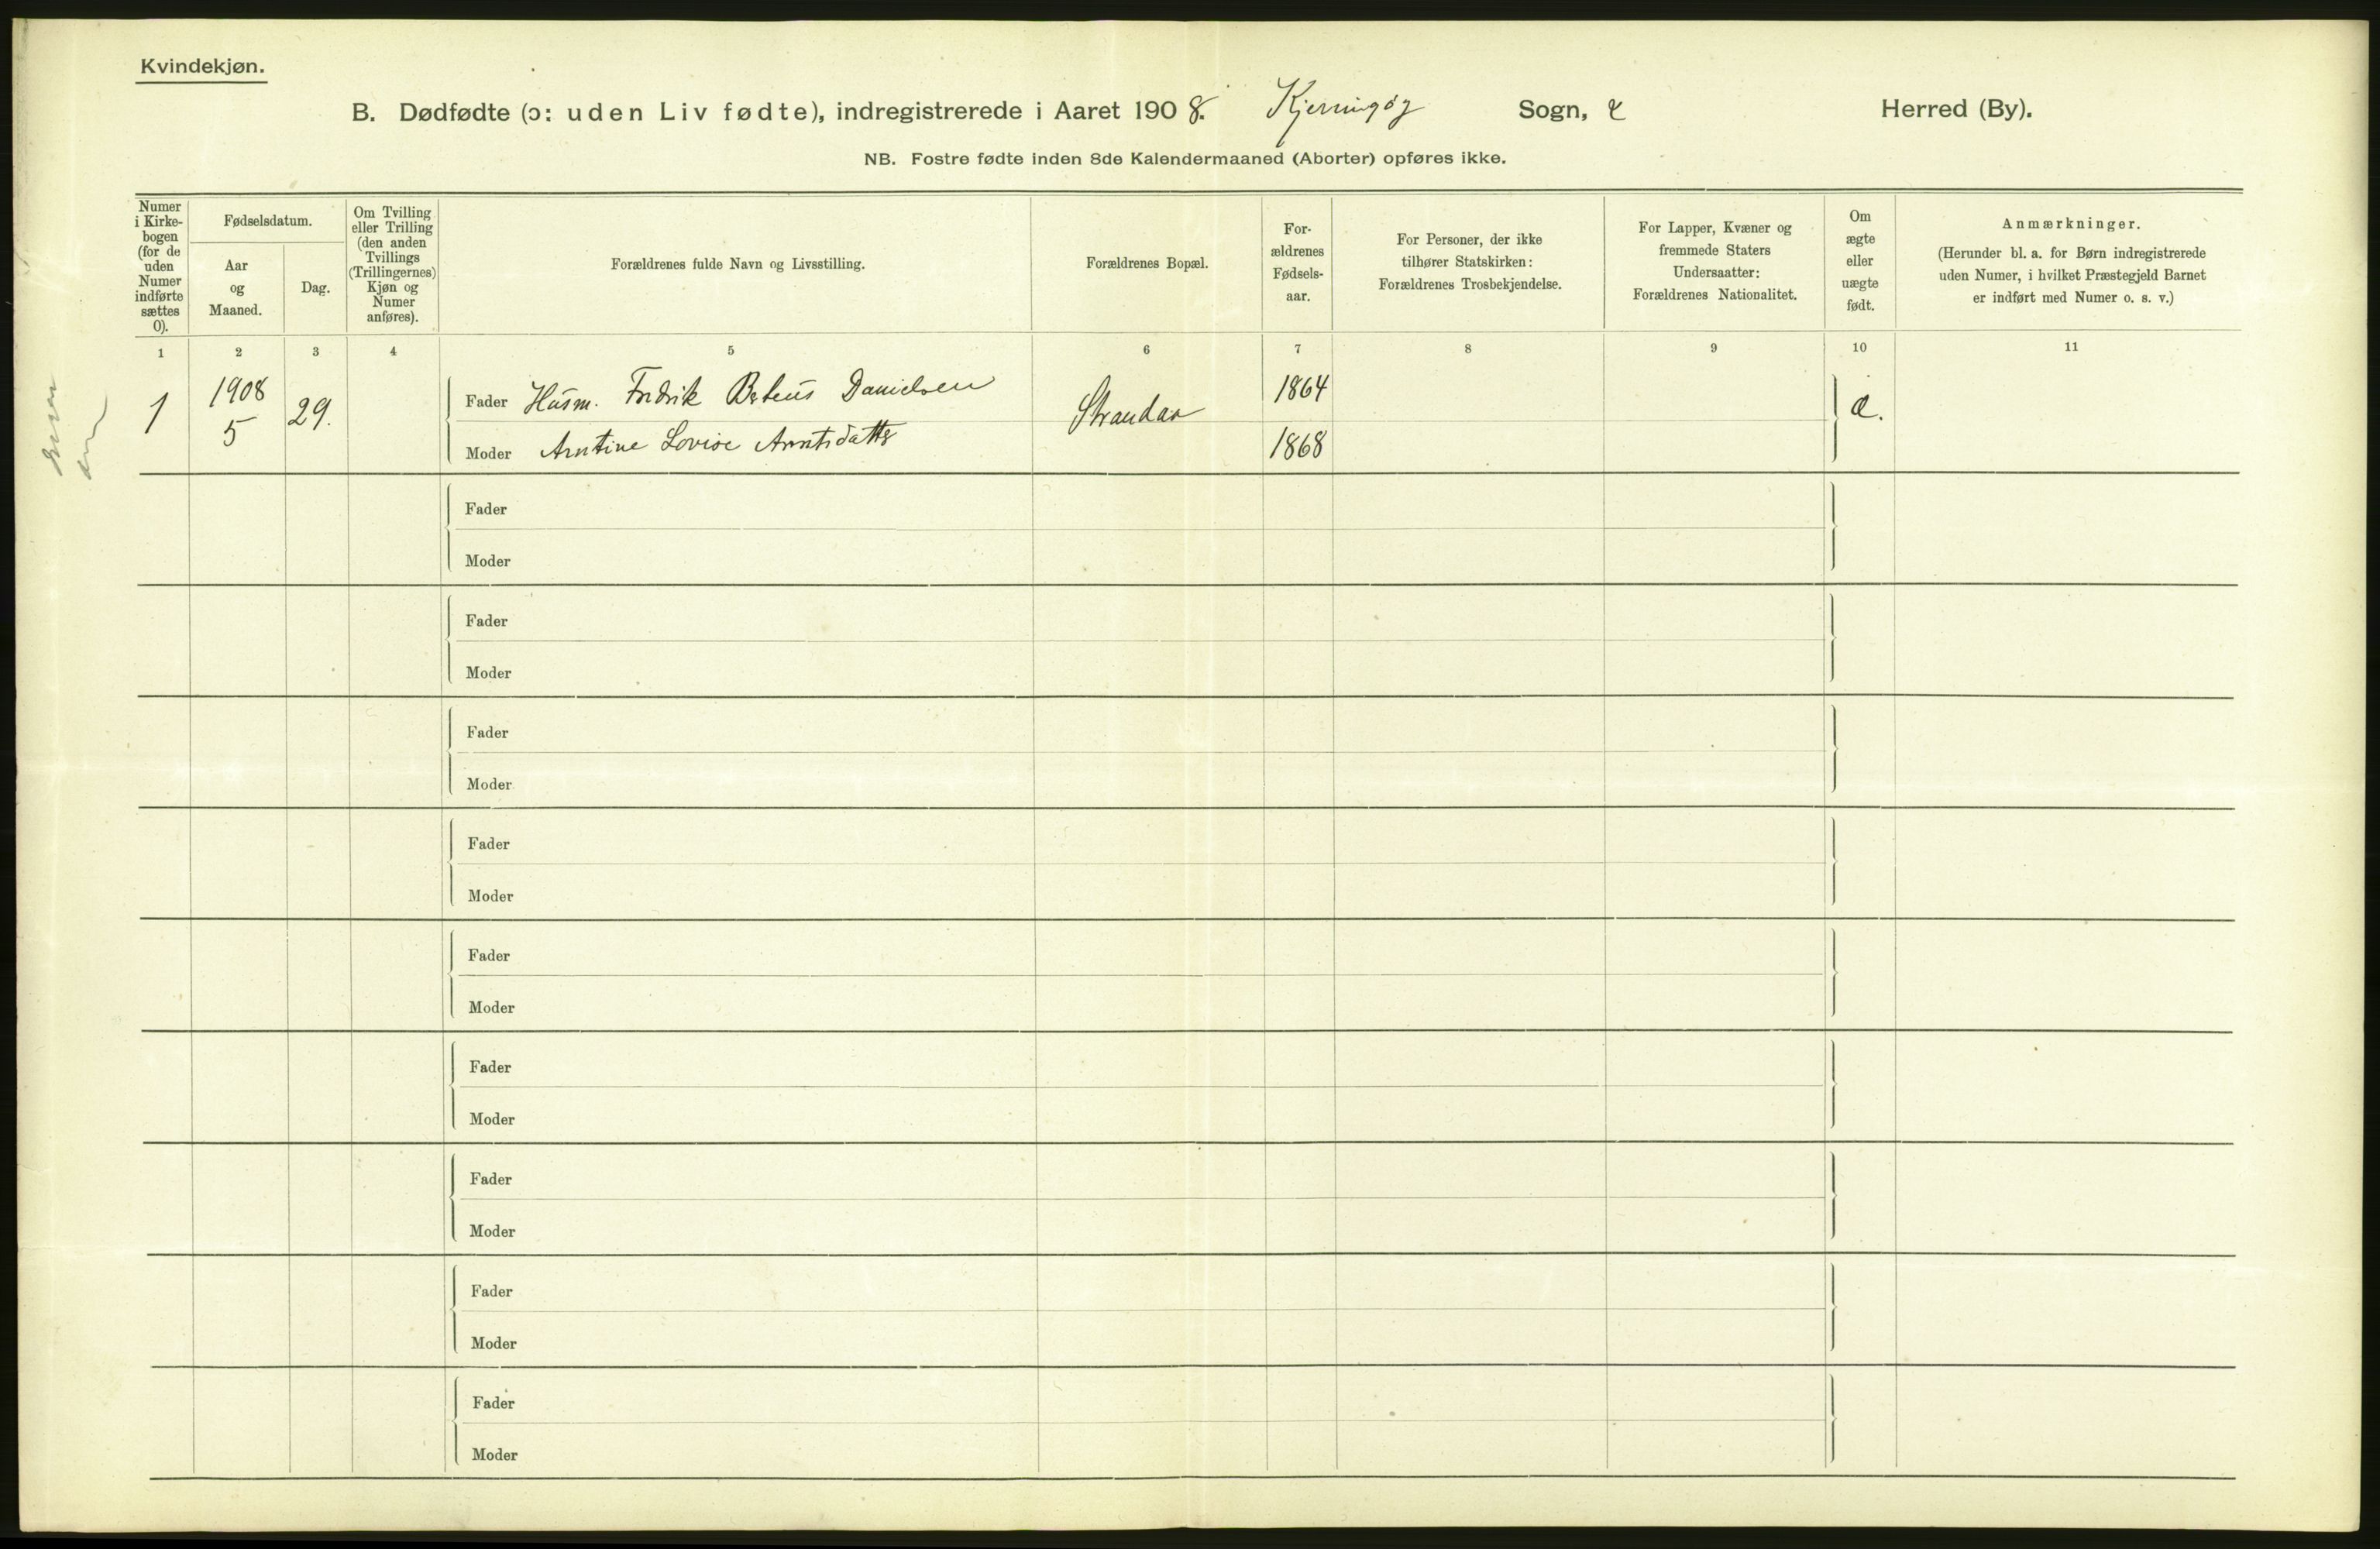 Kvindekjøn.
B. Dødfødte (ɔ: uden Liv fødte), indregistrerede i Aaret 1908. Kjerringøy Sogn, Herred (By).
NB. Fostre fødte inden 8de Kalendermaaned (Aborter) opføres ikke.
Numer
i Kirke-
bogen
(for de
uden
Numer
indførte
sættes
0).
Fødselsdatum.
Aar
og
Maaned.
Dag.
Om Tvilling
eller Trilling
(den anden
Tvillings
(Trillingernes)
Kjøn og
Numer
anføres).
Forældrenes fulde Navn og Livsstilling.
Forældrenes Bopæl.
For-
ældrenes
Fødsels-
aar.
For Personer, der ikke
tilhører Statskirken:
Forældrenes Trosbekjendelse.
For Lapper, Kvæner og
fremmede Staters
Undersaatter:
Forældrenes Nationalitet.
Om
ægte
eller
uægte
født.
Anmærkninger.
(Herunder bl. a. for Børn indregistrerede
uden Numer, i hvilket Præstegjeld Barnet
er indført med Numer o. s. v.)
1 2 3 4 5 6 7 8 9 10 11
1 1908 5 29. Fader Husm. Fredrik Danielsen Strandaa 1864 æ.
Moder Arntine Lovise Arntsdatter 1868
Fader
Moder
Fader
Moder
Fader
Moder
Fader
Moder
Fader
Moder
Fader
Moder
Fader
Moder
Fader
Moder
Fader
Moder